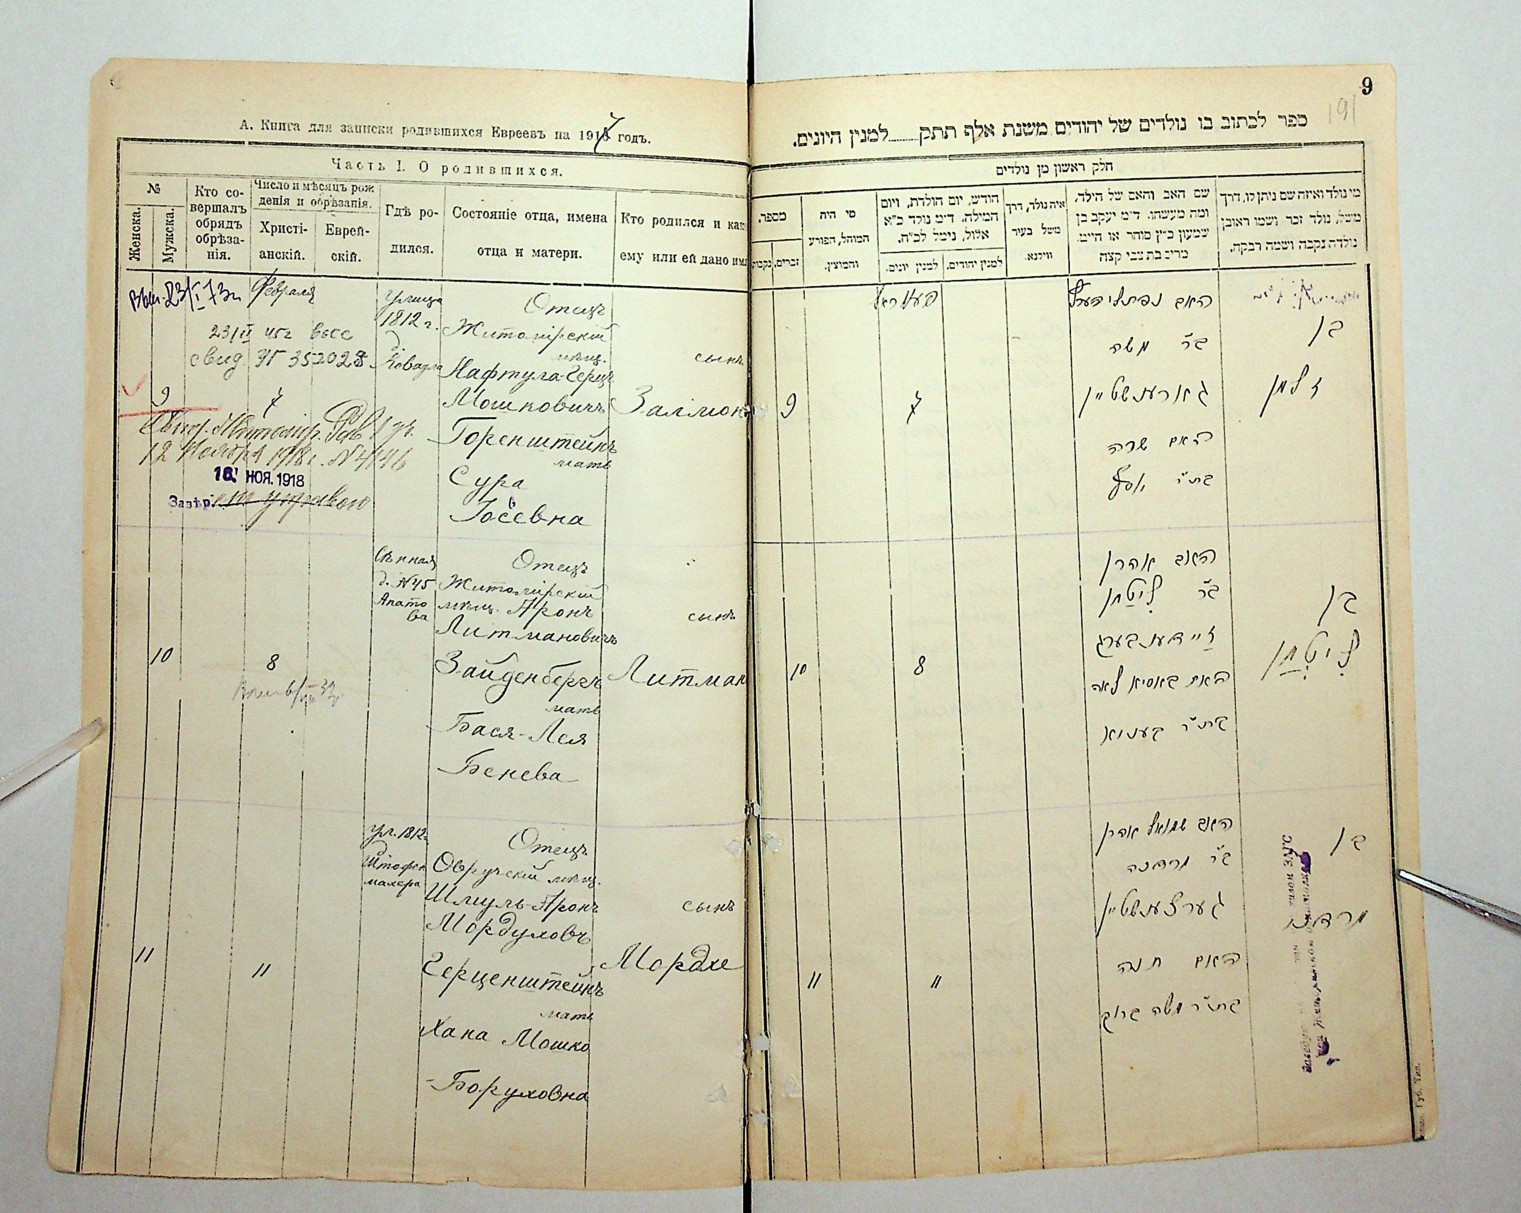 А. Книга для записки родившихся Евреевъ на 1917 годъ.
Часть I. О родившихся.
№
Женска.
Мужска.
Кто со-
вершалъ
обрядъ
обрѣза-
нія.
Число и мѣсяцъ рож
денія и обрѣзанія.
Христі-
анскій.
Еврей-
скій.
Гдѣ ро-
дился.
Состояніе отца, имена
отца и матери.
Кто родился и как
ему или ей дано имя
Февраля
23/II 45г
свид.
9
7
Свид. Житомір.
12 Ноября 1918 г. № 4146
16 НОЯ. 1918
улица
1812 г.
д.
Отецъ
Житомірскій
мѣщ.
Нафтула-Герцъ
Мошковичъ
Горенштейнъ
мать
Сура
Іосевна
сынъ
Залмонъ
10
8
Сѣнная
д. №45
Апато
ва
Отецъ
Житомірскій
мѣщ. Аронъ
Литмановичъ
Зайденбергъ
мать
Бася-Лея
Бенева
сынъ
Литман
11
11
ул. 1812г
д.
Штофен
махера
Отецъ
Овручскій мѣщ.
Шмуль-Аронъ
Мордуловъ
Герценштейнъ
мать
Хана Мошко
-Боруховна
сынъ
Мордхе
9
191
ספר לכתוב בו נולדים של יהודים משנת אלף תתק......למנין היונים.
חלק ראשון מן נולדים
מספר.
זכרים.
נקבות
מי היה
המוהל, הפורע
והמוצץ.
חודש, יום הולדת, ויום
המילה. ד״מ נולד כ״א
אלול, נימל לכ״ח.
למנין יונים.
למנין יהודים.
איה נולד, דרך
משל בעיר
ווילנא.
שם האב והאם של הילד,
ומה מעשהו. ד״מ יעקב בן
שמעון כ״ץ סוחר או חייט.
מרים בת צבי קצה
מי נולד ואיזה שם ניתן לו, דרך
משל, נולד זכר ושמו ראובן
נולדה נקבה ושמה רבקה.
פעוראל
9
7
האב נפתלי הערץ
ב״ר משה
גארענשטיין
האם שרה
בת״ר יוסף
בן
זלמן
10
8
האב אהרן
ב״ר ליטמן
זיידענבערג
האם באסיא לאה
בן
ליטמן
11
11
האב שמואל אהרן
ב״ר מרדכה
גערצענשטיין
האם חנה
בת״ר משה ברוך
בן
מרדכה